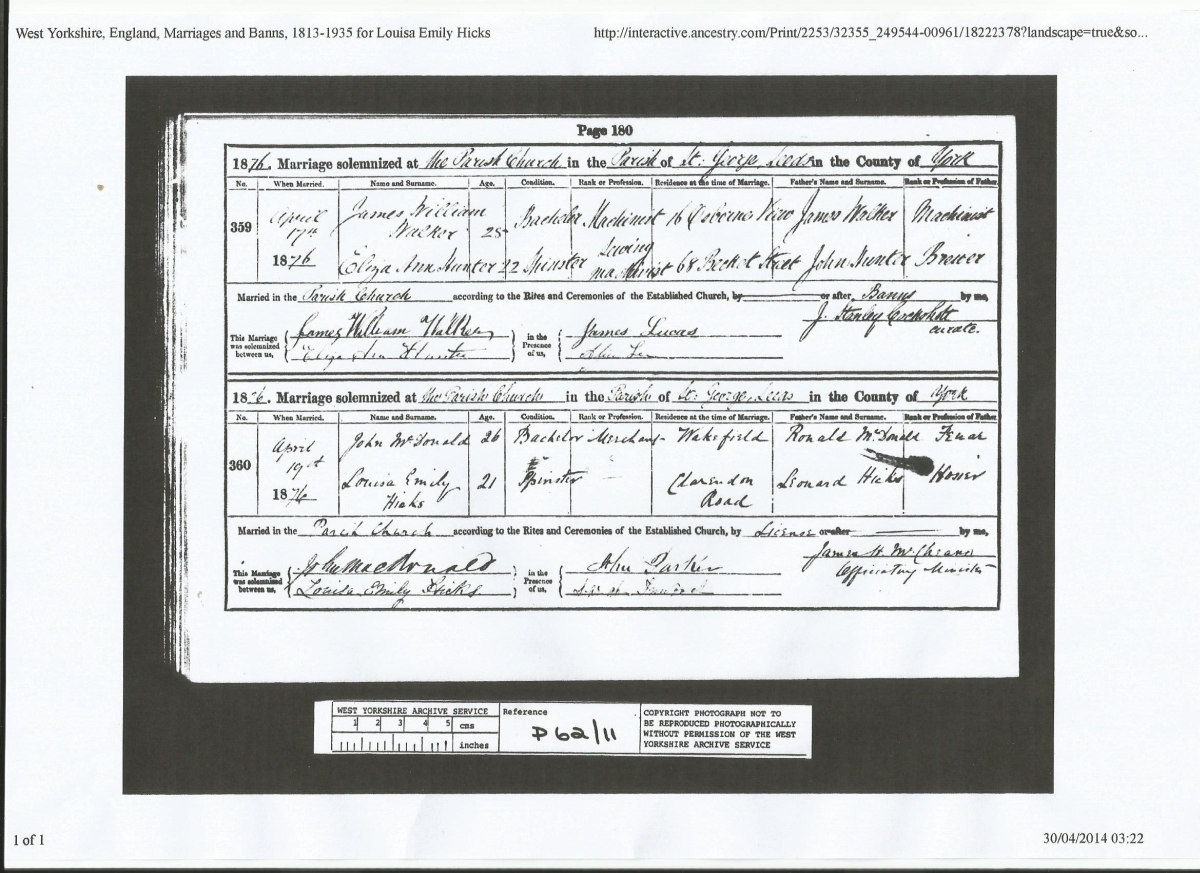 West Yorkshire, England, Marriages and Banns, 1813-1935 for Louisa Emily Hicks
http://interactive.ancestry.com/Print/2253/32355_249544-00961/18222378?landscape=true&so...
Page 180
1876. Marriage solemnized at the Parish Church in the Parish of St. George, Leeds in the County of York
No. When Married. Name and Surname. Age. Condition. Rank or Profession. Residence at the time of Marriage. Father's Name and Surname. Rank or Profession of Father.
359 April 17th 1876 James William Walker 28 Bachelor Machinist 16 Osborne View James Walker Machinist
Eliza Ann Hunter 22 Spinster Sewing Machinist 68 Becket Street John Hunter Brewer
Married in the Parish Church according to the Rites and Ceremonies of the Established Church, by or after Banns by me,
J. Stanley curate.
This Marriage was solemnized between us, James William Walker in the Presence of us, James Lucas
Eliza Ann Hunter
1876. Marriage solemnized at the Parish Church in the Parish of St. George, Leeds in the County of York
No. When Married. Name and Surname. Age. Condition. Rank or Profession. Residence at the time of Marriage. Father's Name and Surname. Rank or Profession of Father.
360 April 19th 1876 John McDonald 26 Bachelor Merchant Wakefield Ronald McDonald
Louisa Emily Hicks 21 Spinster Clarendon Road Leonard Hicks Hosier
Married in the Parish Church according to the Rites and Ceremonies of the Established Church, by License or after by me,
James H. Officiating Minister
This Marriage was solemnized between us, John MacDonald in the Presence of us, Parker
Louisa Emily Hicks
WEST YORKSHIRE ARCHIVE SERVICE
1 2 3 4 5 cms
inches
Reference
P62/11
COPYRIGHT PHOTOGRAPH NOT TO
BE REPRODUCED PHOTOGRAPHICALLY
WITHOUT PERMISSION OF THE WEST
YORKSHIRE ARCHIVE SERVICE
1 of 1
30/04/2014 03:22